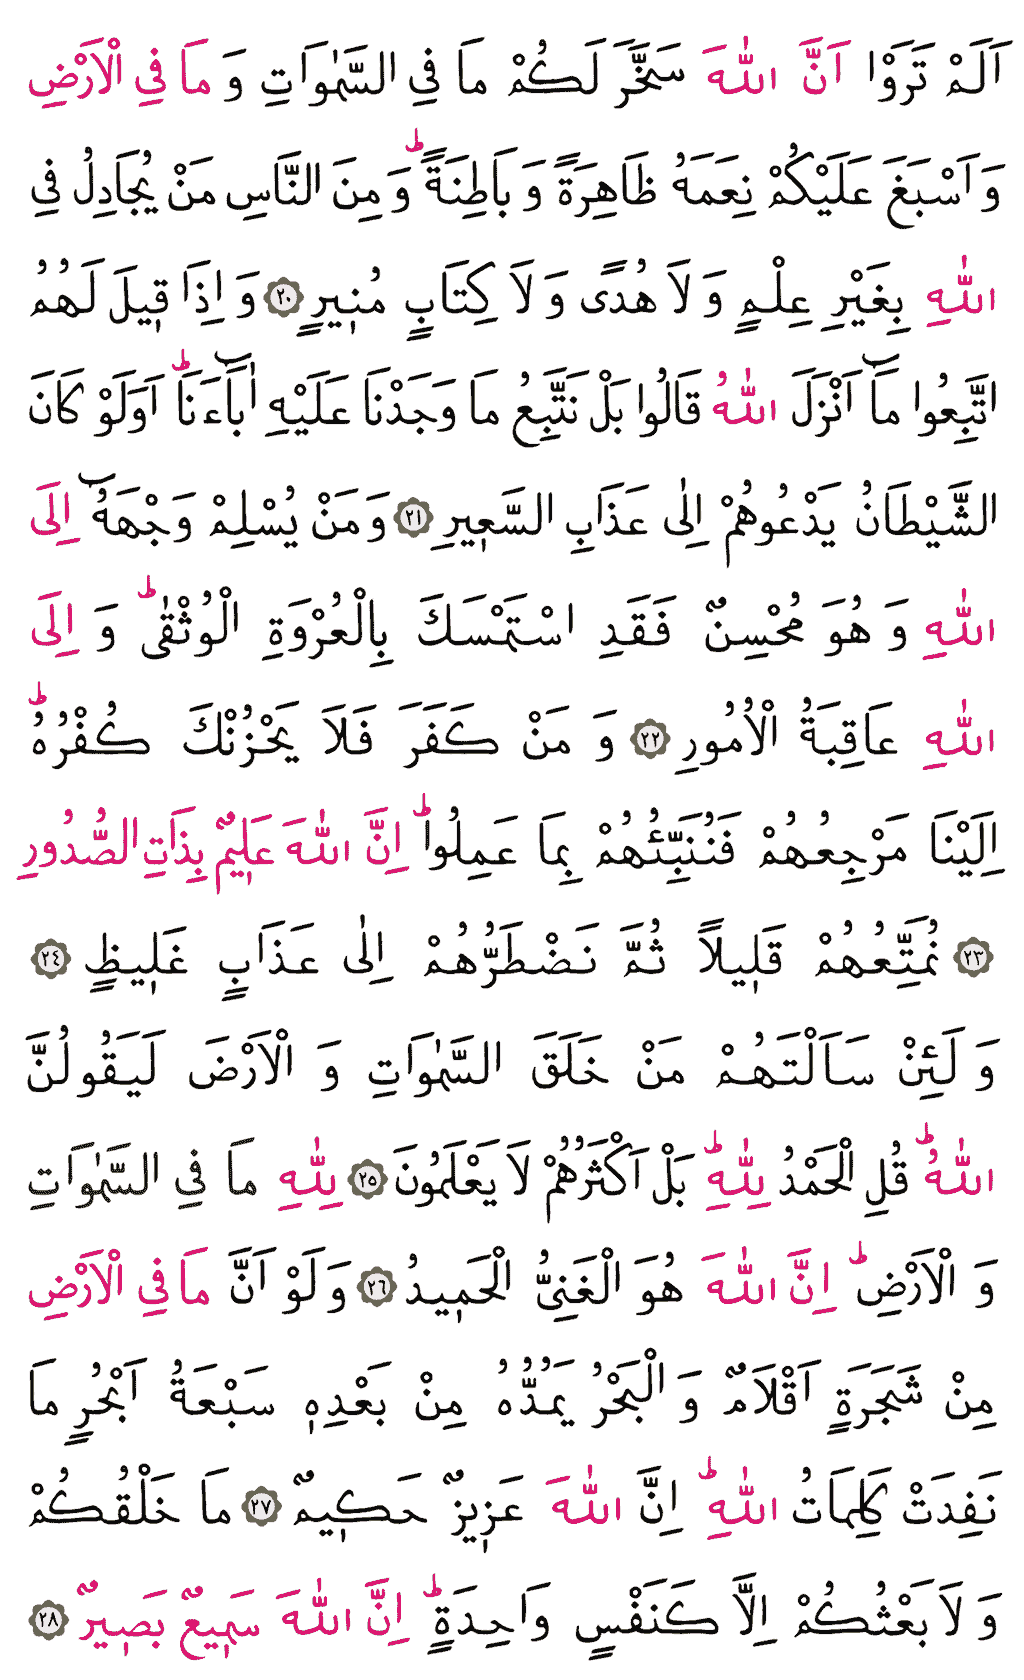 اَلَمْ تَرَوْا اَنَّ اللّٰهَ سَخَّرَ لَكُمْ مَا فِي السَّمٰوَاتِ وَ مَا فِي الْاَرْضِ
وَ اَسْبَغَ عَلَيْكُمْ نِعَمَهُ ظَاهِرَةً وَ بَاطِنَةًۜ وَ مِنَ النَّاسِ مَنْ يُجَادِلُ فِي
اللّٰهِ بِغَيْرِ عِلْمٍ وَ لَا هُدًى وَ لَا كِتَابٍ مُنٖيرٍ ﴿٢٠﴾ وَ اِذَا قٖيلَ لَهُمُ
اتَّبِعُوا مَٓا اَنْزَلَ اللّٰهُ قَالُوا بَلْ نَتَّبِعُ مَا وَجَدْنَا عَلَيْهِ اٰبَٓاءَنَاۜ اَوَلَوْ كَانَ
الشَّيْطَانُ يَدْعُوهُمْ اِلٰى عَذَابِ السَّعٖيرِ ﴿٢١﴾ وَ مَنْ يُسْلِمْ وَجْهَهُٓ اِلَى
اللّٰهِ وَ هُوَ مُحْسِنٌ فَقَدِ اسْتَمْسَكَ بِالْعُرْوَةِ الْوُثْقٰىۜ وَ اِلَى
اللّٰهِ عَاقِبَةُ الْاُمُورِ ﴿٢٢﴾ وَ مَنْ كَفَرَ فَلَا يَحْزُنْكَ كُفْرُهُۜ
اِلَيْنَا مَرْجِعُهُمْ فَنُنَبِّئُهُمْ بِمَا عَمِلُواۜ اِنَّ اللّٰهَ عَلٖيمٌ بِذَاتِ الصُّدُورِ
﴿٢٣﴾ نُمَتِّعُهُمْ قَلٖيلًا ثُمَّ نَضْطَرُّهُمْ اِلٰى عَذَابٍ غَلٖيظٍ ﴿٢٤﴾
وَ لَئِنْ سَاَلْتَهُمْ مَنْ خَلَقَ السَّمٰوَاتِ وَ الْاَرْضَ لَيَقُولُنَّ
اللّٰهُۜ قُلِ الْحَمْدُ لِلّٰهِۜ بَلْ اَكْثَرُهُمْ لَا يَعْلَمُونَ ﴿٢٥﴾ لِلّٰهِ مَا فِي السَّمٰوَاتِ
وَ الْاَرْضِۜ اِنَّ اللّٰهَ هُوَ الْغَنِيُّ الْحَمٖيدُ ﴿٢٦﴾ وَ لَوْ اَنَّ مَا فِي الْاَرْضِ
مِنْ شَجَرَةٍ اَقْلَامٌ وَ الْبَحْرُ يَمُدُّهُ مِنْ بَعْدِهٖ سَبْعَةُ اَبْحُرٍ مَا
نَفِدَتْ كَلِمَاتُ اللّٰهِۜ اِنَّ اللّٰهَ عَزٖيزٌ حَكٖيمٌ ﴿٢٧﴾ مَا خَلْقُكُمْ
وَ لَا بَعْثُكُمْ اِلَّا كَنَفْسٍ وَاحِدَةٍۜ اِنَّ اللّٰهَ سَمٖيعٌ بَصٖيرٌ ﴿٢٨﴾